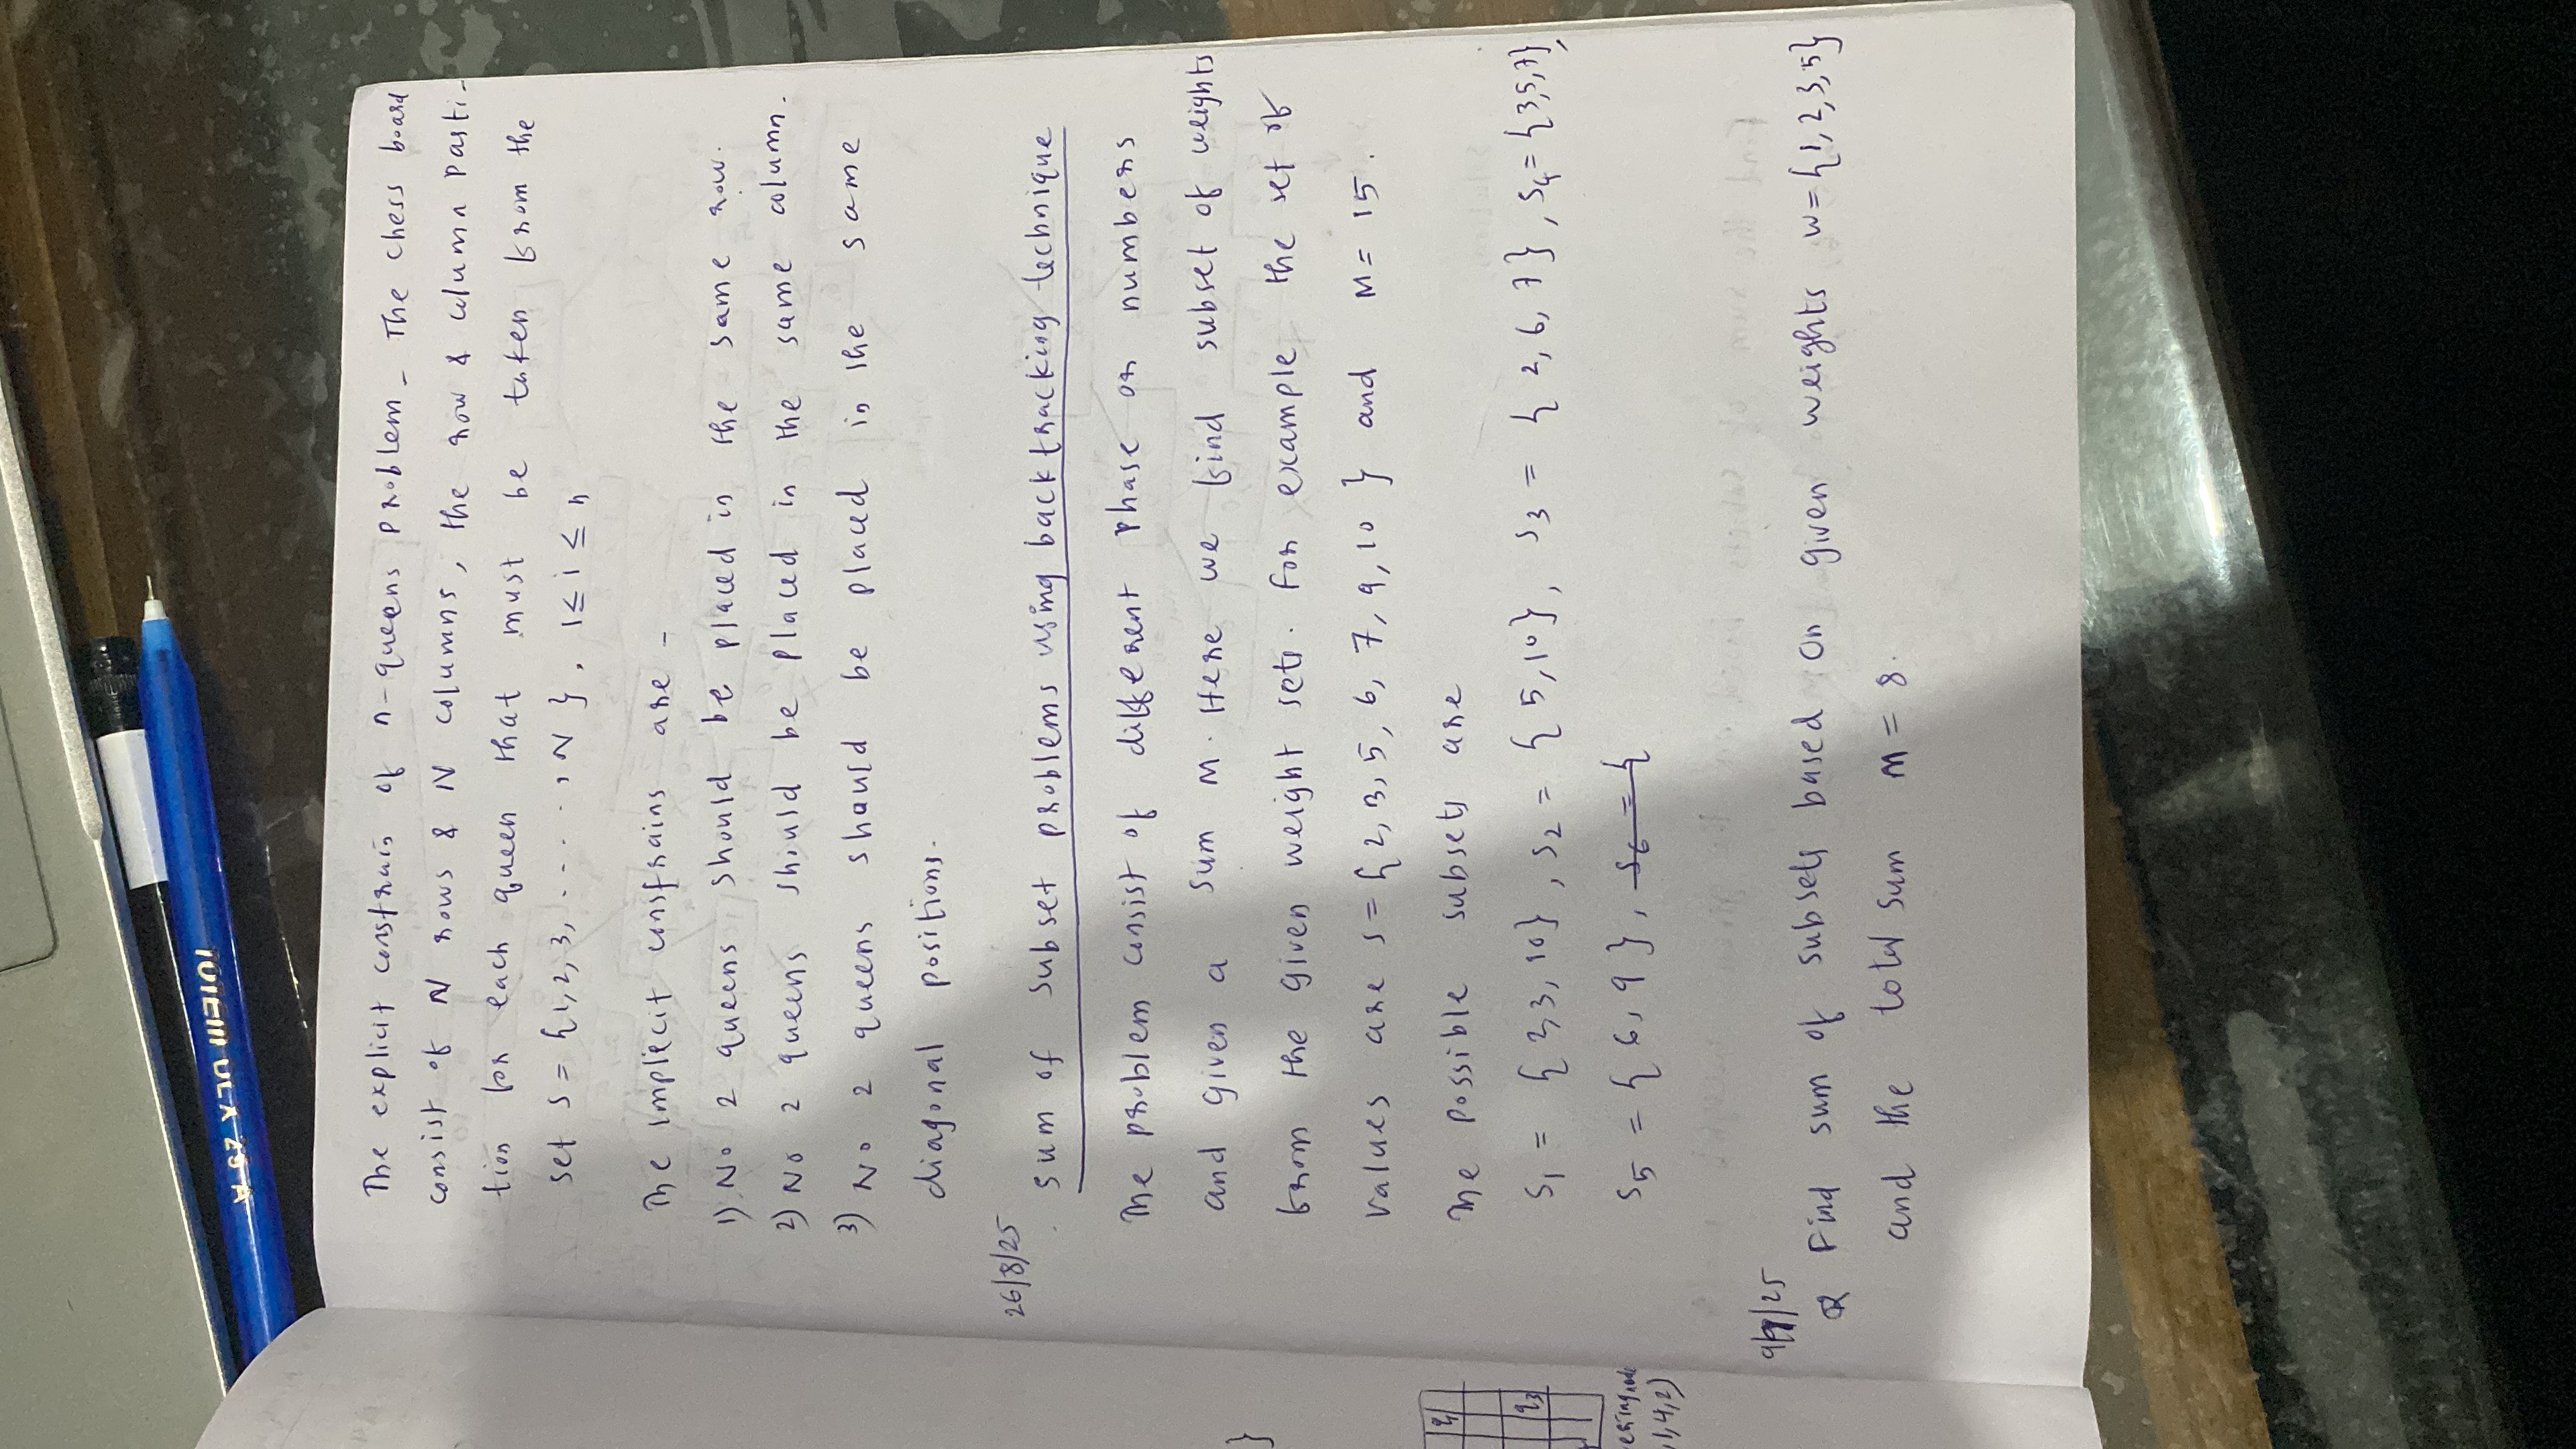 TOTEM ULX 29 A
The explicit constrais of n-queens problem - The chess board
consist of N rows & N columns, the row & column parti-
tion for each queen that must be taken from the
set S = {1, 2, 3, ....., N }. 1 ≤ i ≤ n
The implicit constrains are -
1) No 2 queens should be placed in the same row.
2) No 2 queens should be placed in the same column.
3) No 2 queens should be placed in the same
diagonal positions.
26/8/25
sum of subset problems using backtracking technique
The problem consist of different phase or numbers
and given a sum M. Here we find subset of weights
from the given weight sets. For example the set of
values are s = { 2, 3, 5, 6, 7, 9, 10 } and M = 15.
The possible subsets are
S1 = { 2, 3, 10}, S2 = { 5, 10}, S3 = { 2, 6, 7 }, S4 = {3,5,7},
S5 = { 6, 9 }, S6 = {
}
q3
1,4,2)
9/9/25
Q Find sum of subsets based on given weights w = {1, 2, 3, 5}
and the total sum m = 8.